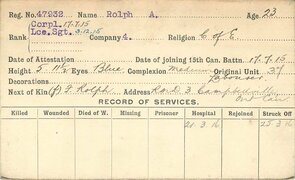 Reg. No. 47932 Name Rolph A. Age 23
Corpl. 17.7.15
Rank Lce. Sgt. 3.12.15 Company 4. Religion C of E
Date of Attestation Date of joining 15th Can. Battn. 17.7.15
Height 5 11½ Eyes Blue Complexion Medium Original Unit 37
Decorations Labourer
Next of Kin (f) F. Rolph Address R.R. No 3 Campbellville
Ontario
RECORD OF SERVICES.
Killed Wounded Died of W. Missing Prisoner Hospital Rejoined Struck Off
21 3 16 25 3 16